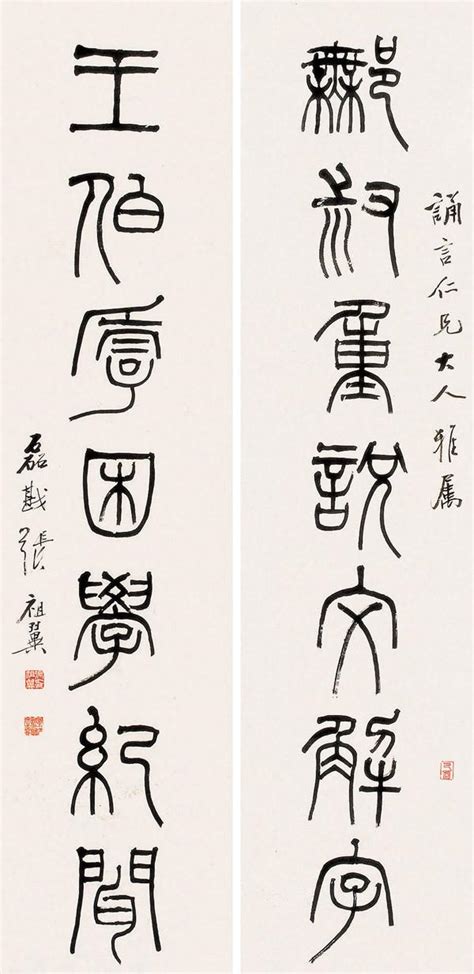 誦言仁兄大人雅属
鄦叔重說文解字
王伯厚困學紀聞
磊戡張祖翼